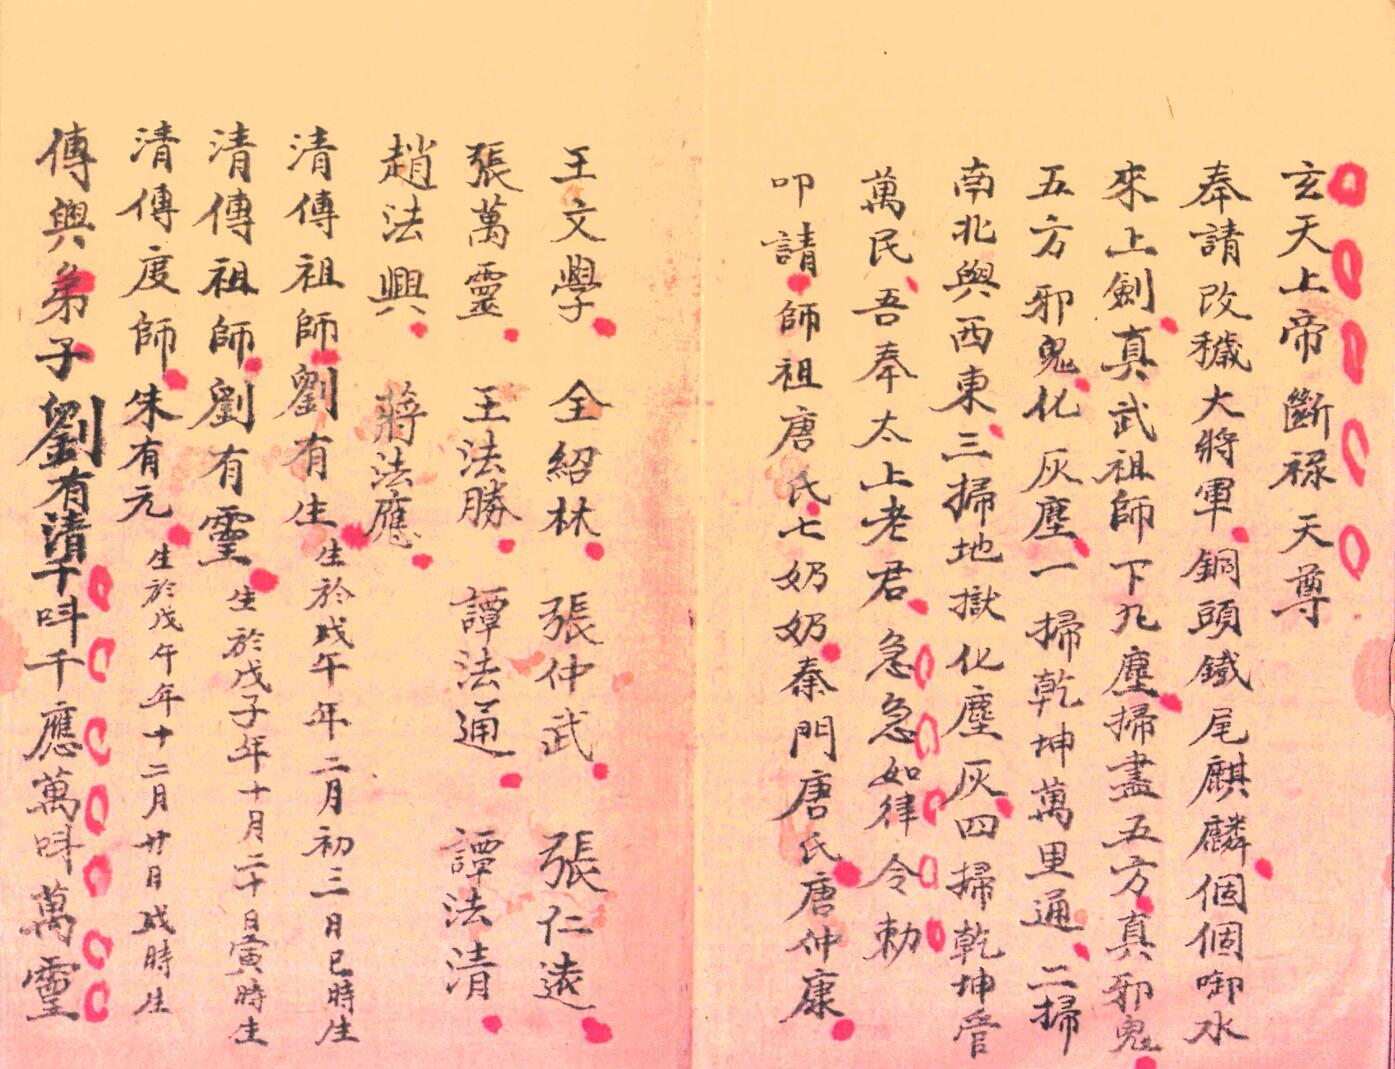 玄天上帝斷祿天尊
奉請改穢大將軍銅頭鐵尾麒麟個個啣水
來上劍真武祖師下九塵掃盡五方真邪鬼
五方邪鬼化灰塵一掃乾坤萬里通二掃
南北與西東三掃地獄化塵灰四掃乾坤管
萬民吾奉太上老君急急如律令勅
叩請師祖唐氏七奶奶秦門唐氏唐仲康
王文學 全紹林 張仲武 張仁遠
張萬靈 王法勝 譚法通 譚法清
趙法興 蔣法應
清傳祖師劉有生生於戊午年二月初三日巳時生
清傳祖師劉有靈生於戊子年十月二十日寅時生
清傳度師朱有元生於戊午年十二月廿日戌時生
傳與弟子劉有清千叫千應萬叫萬靈